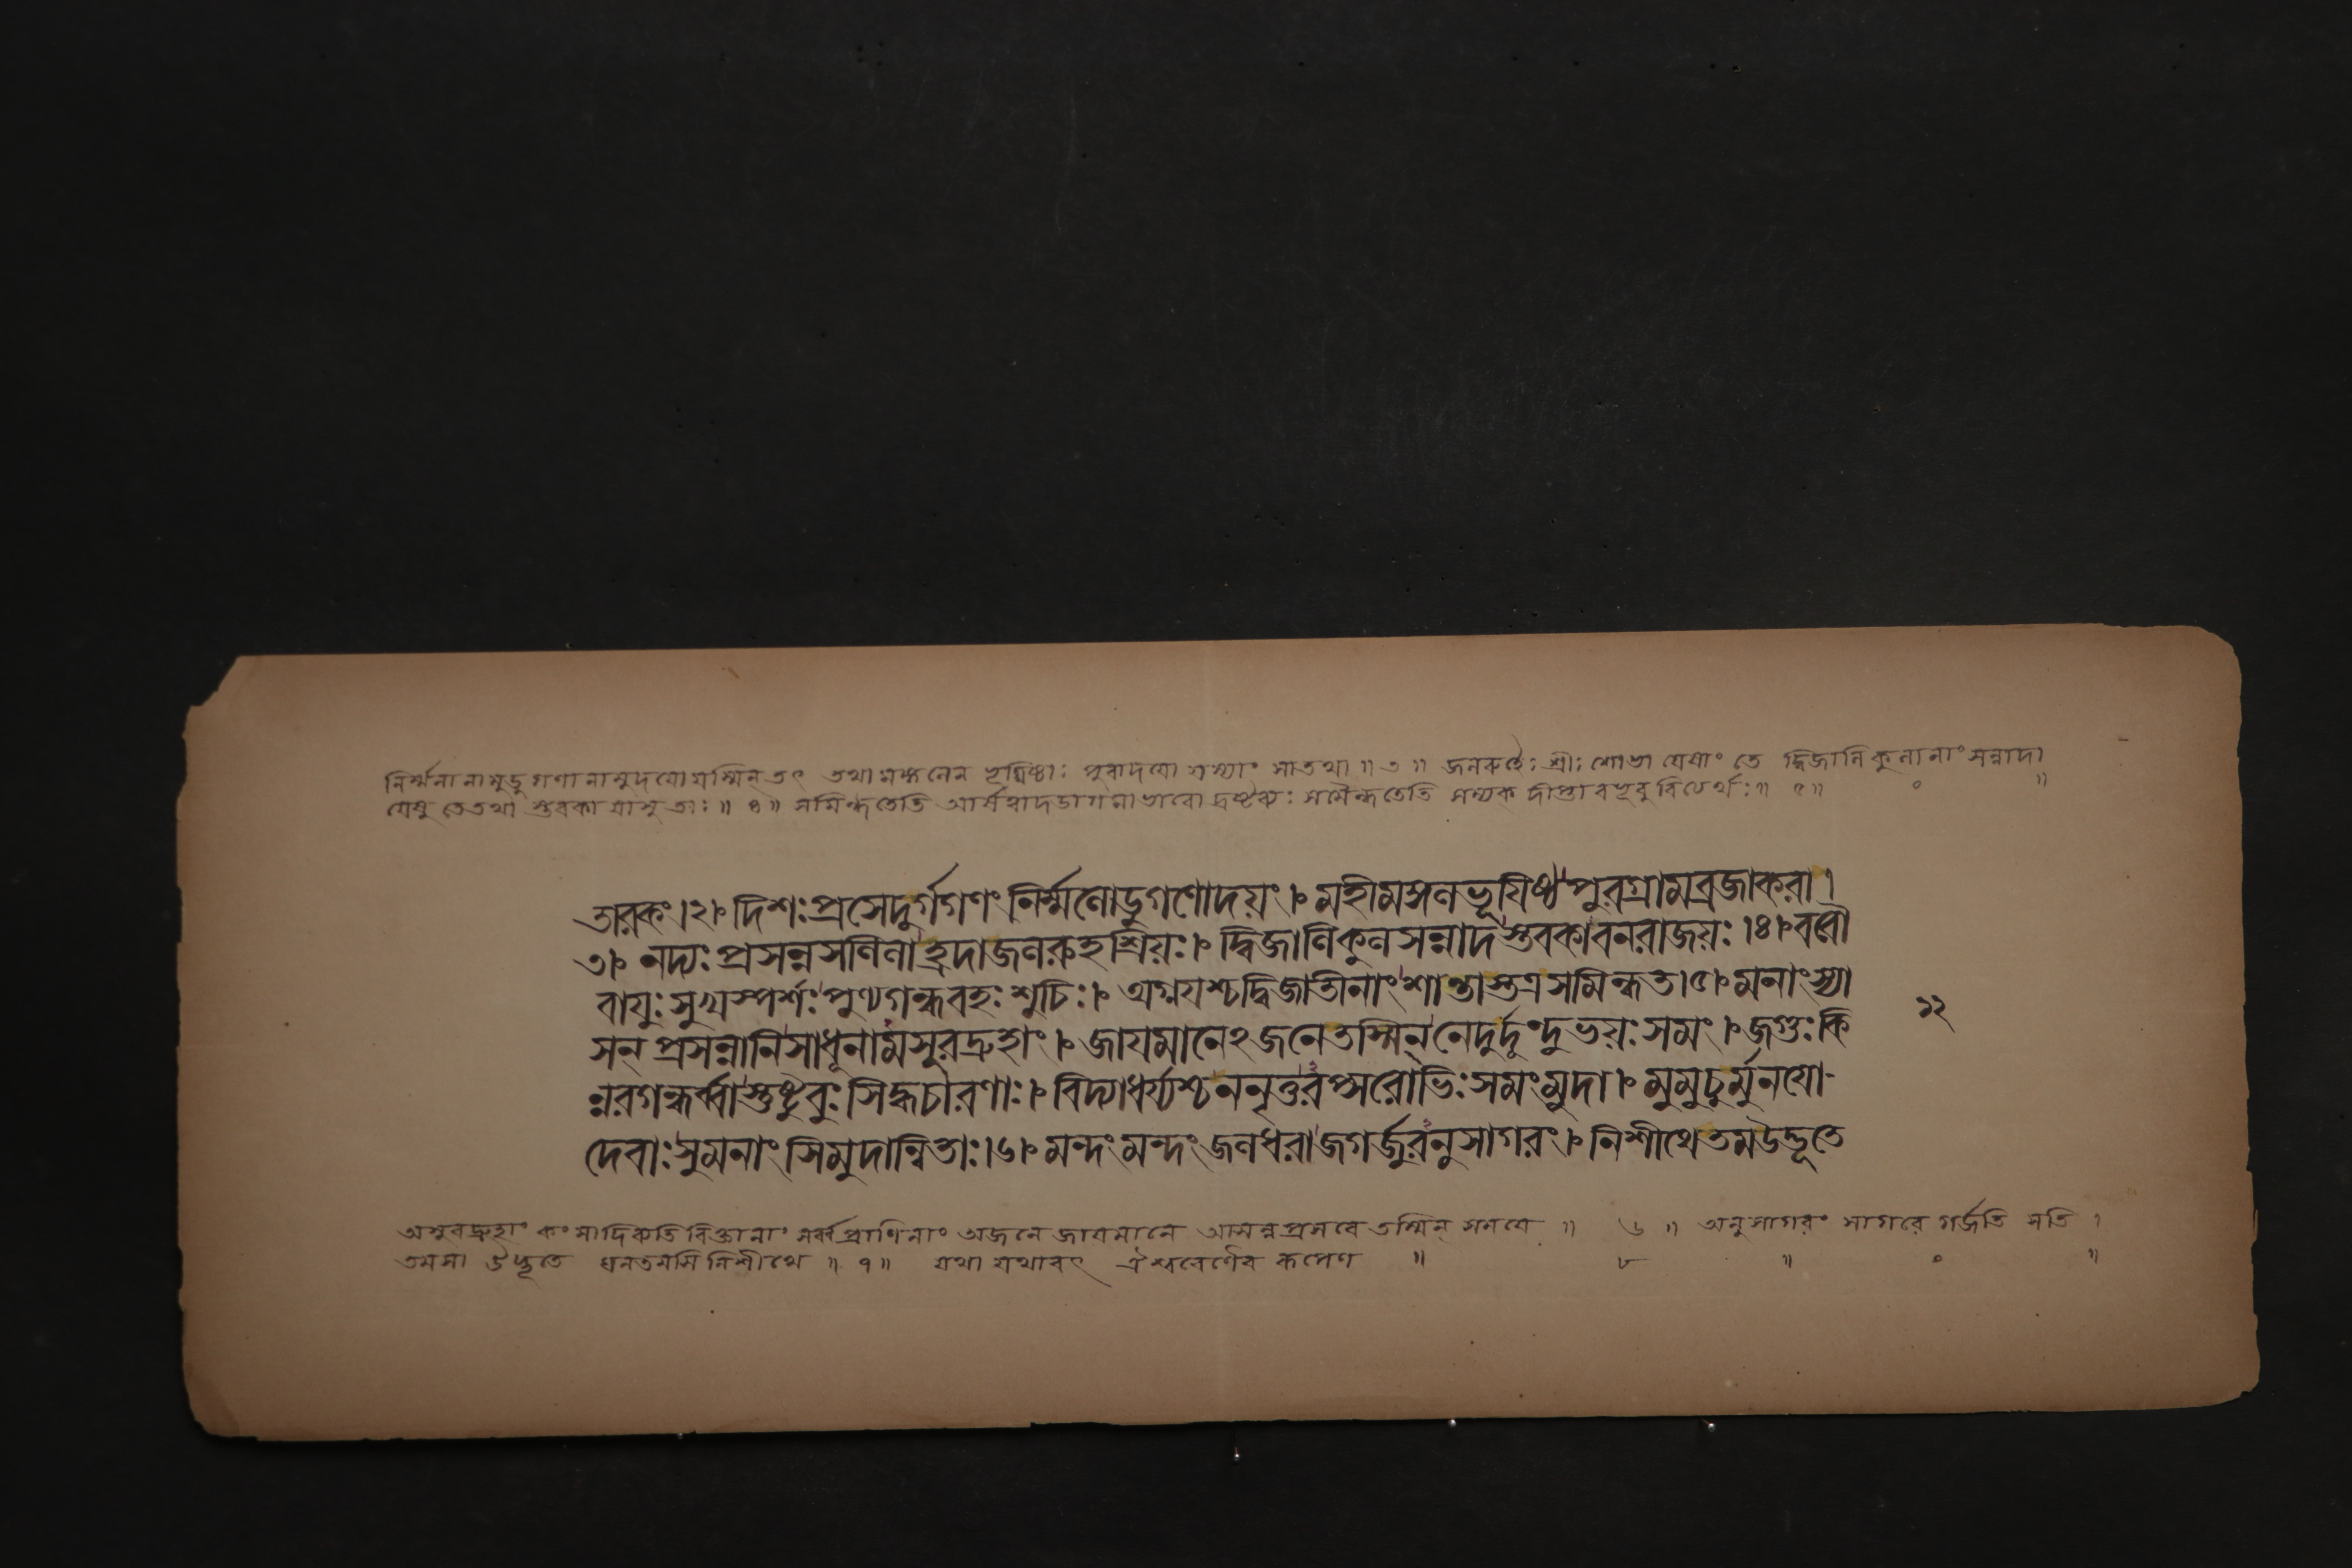 নির্ম্মলানামুডুগণানামুদযো যস্মিন্ তৎ তথা মঙ্গলেন ভূযিষ্ঠাঃ পুরাদযো যস্যাং সা তথা ॥ ৩ ॥ জলরুহৈঃ শ্রীঃ শোভা যেষাং তে দ্বিজালি কুলানাং সন্নাদা
যেষু তে তথা স্তবকা যাসু তাঃ ॥ ৪ ॥ সমিন্ধতেতি আর্ষত্বাদডাগমাভাবো দ্রষ্টব্যঃ সমৈন্ধতেতি সম্যক্ দীপ্তা বভূবুরিত্যর্থঃ ॥ ৫ ॥ ০ ॥
তারকং ।২।৹ দিশঃ প্রসেদুর্গগণং নির্ম্মলোডুগণোদয়ং ।৹ মহীমঙ্গলভূযিষ্ঠ পুরগ্রামব্রজাকরা ।
৩।৹ নদ্যঃ প্রসন্নসলিলা হ্রদাজলরুহশ্রিয়ঃ ।৹ দ্বিজালিকুল সন্নাদ স্তবকাবনরাজয়ঃ ।৪।৹ ববৌ
বাযুঃ সুখস্পর্শঃ পুণ্যগন্ধবহঃ শুচিঃ ।৹ অগ্নযশ্চদ্বিজাতীনাং শান্তাস্তত্রসমিন্ধত।৫।৹ মনাংস্যা
সন্ প্রসন্নানি সাধূনামসুরদ্রুহাং ।৹ জাযমানেঽজনেতস্মিন্ নেদুর্দুংদুভয়ঃ সমং ।৹ জগুঃ কি
ন্নরগন্ধর্ব্বাস্তুষ্টুবুঃ সিদ্ধচারণাঃ ।৹ বিদ্যাধর্য্যশ্চ ননৃতুরপ্সরোভিঃ সমংমুদা ।৹ মুমুচুর্মুনযো-
দেবাঃ সুমনাংসিমুদান্বিতাঃ ।৬।৹ মন্দং মন্দং জলধরা জগর্জ্জুরনুসাগরং ।৹ নিশীথে তমউদ্ভূতে
১২
অসুরদ্রুহাং কংসাদিব্যতিরিক্তানাং সর্ব্বপ্রাণিনাং অজনে জাযমানে আসন্নপ্রসবে তস্মিন্ সমযে ॥ ৬ ॥ অনুসাগরং সাগরে গর্জ্জতি সতি ।
তমসা উদ্ভূতে ঘনতমসি নিশীথে ॥ ৭ ॥ যথা যথাবৎ ঐশ্বরেণৈব রূপেণ ॥ ৮ ॥ ০ ॥